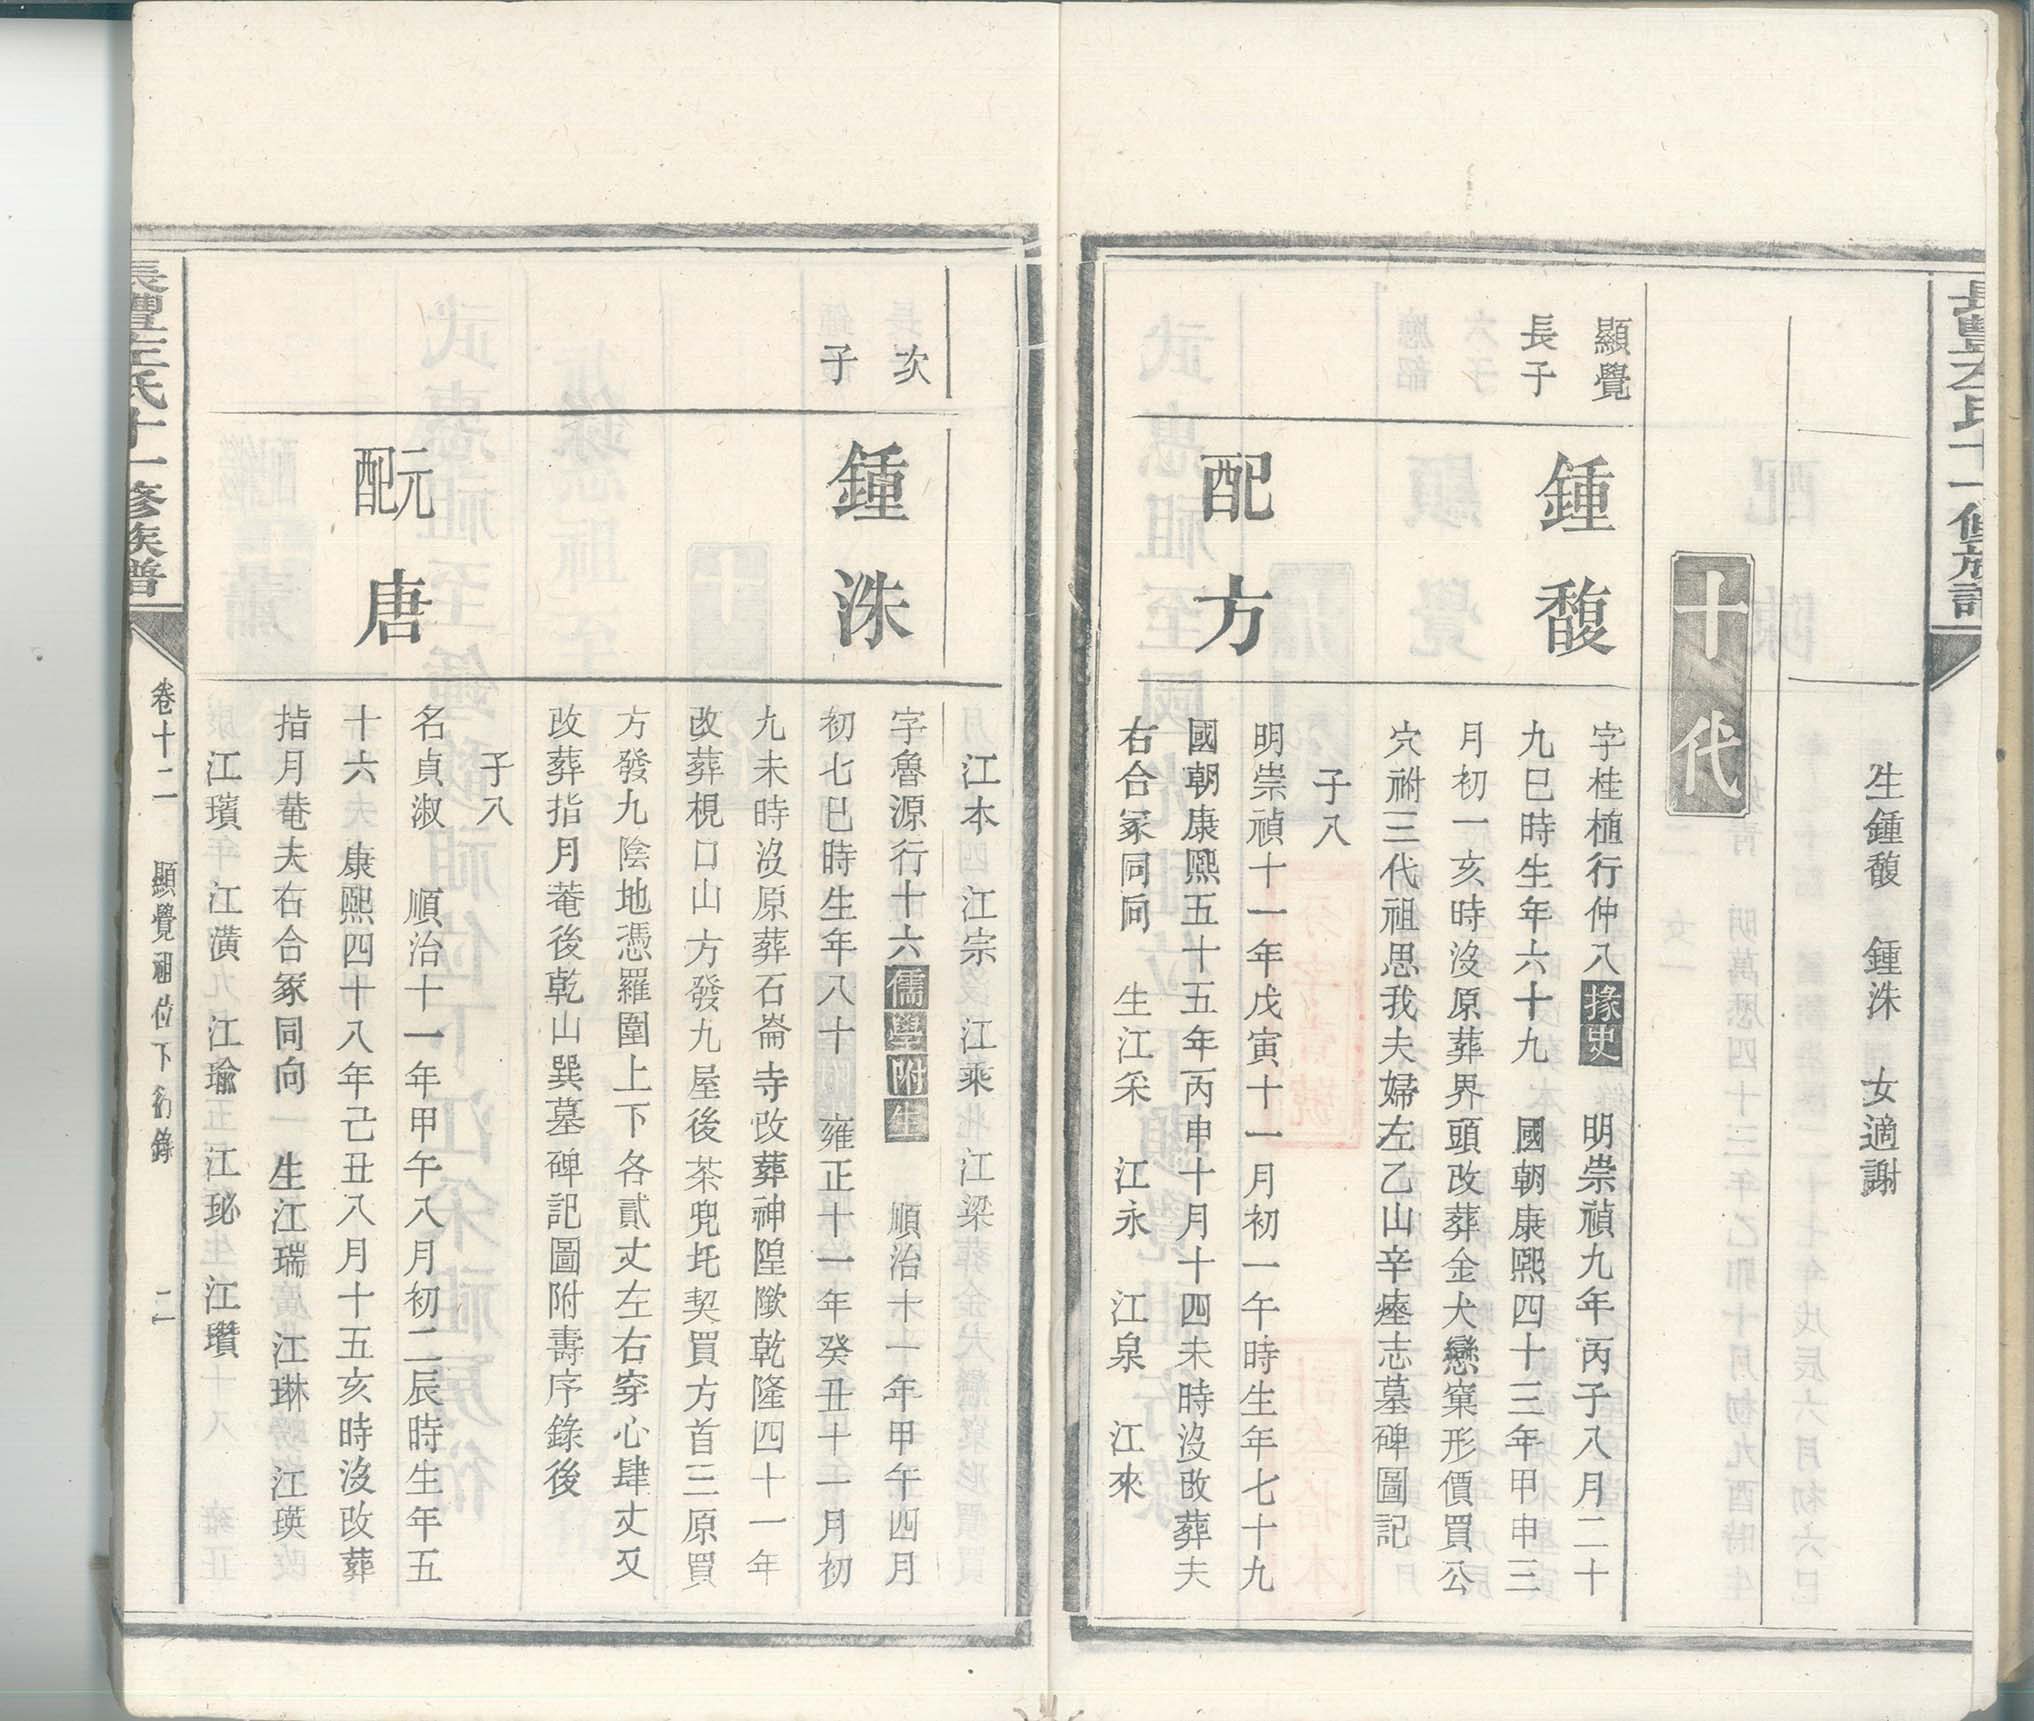 生鍾馥 鍾洙 女適謝
十代
顯覺
長子
鍾馥
字桂植行仲八掾史 明崇禎九年丙子八月二十
九巳時生年六十九 國朝康熙四十三年甲申三
月初一亥時沒原葬界頭改葬金犬戀窠形價買公
穴祔三代祖思我夫婦左乙山辛㘴志墓碑圖記
子八
配方
明崇禎十一年戊寅十一月初一午時生年七十九
國朝康熙五十五年丙申十月十四未時沒改葬夫
右合冢同向 生江采 江永 江泉 江來
江本 江宗 江乘 江梁
次
子
鍾洙
字魯源行十六儒學附生 順治十一年甲午四月
初七巳時生年八十 雍正十一年癸丑十一月初
九未時沒原葬石崙寺改葬神隍歘乾隆四十一年
改葬梘口山方發九屋後茶兜坉契買方首三原買
方發九陰地憑羅圍上下各貳丈左右穿心肆丈又
改葬指月菴後乾山巽墓碑記圖附壽序錄後
子八
元配唐
名貞淑 順治十一年甲午八月初二辰時生年五
十六 康熙四十八年己丑八月十五亥時沒改葬
指月菴夫右合冢同向 生江瑞 江琳 江瑛
江璸 江潢 江瑜 江珌 江瓚
卷十二 顯覺祖位下衍錄 二